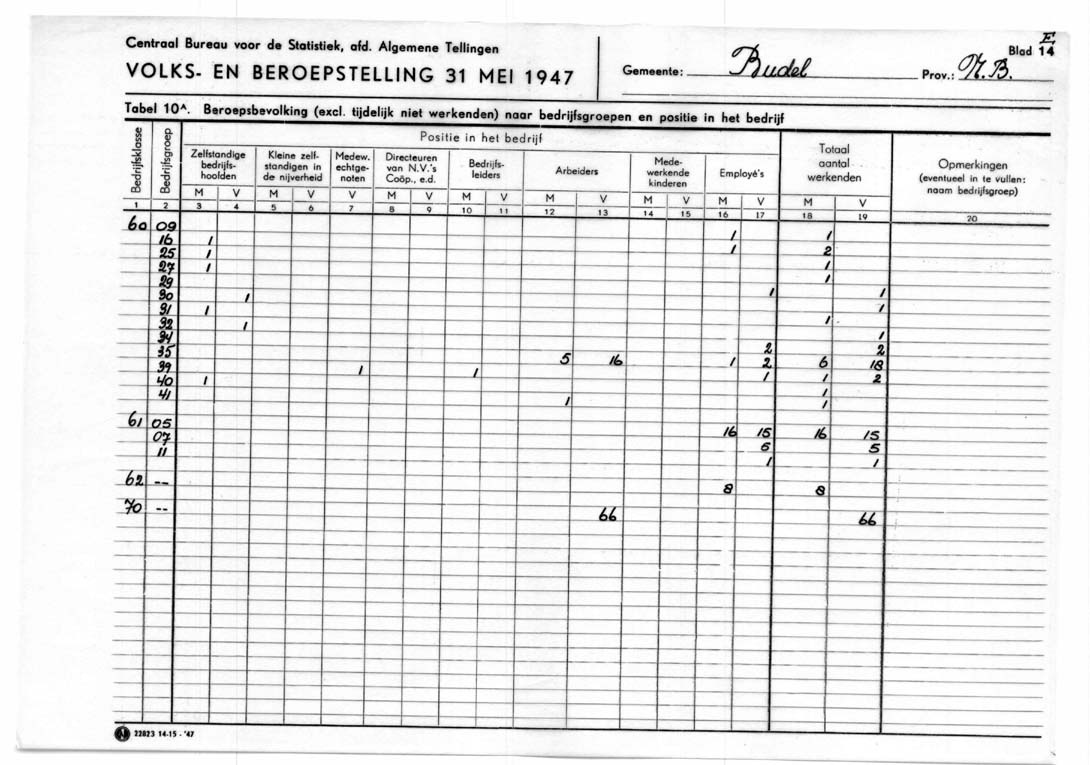 Centraal Bureau voor de Statistiek, afd. Algemene Tellingen
VOLKS- EN BEROEPSTELLING 31 MEI 1947
Gemeente: Budel Prov.: N.B.
E
Blad 14
Tabel 10A. Beroepsbevolking (excl. tijdelijk niet werkenden) naar bedrijfsgroepen en positie in het bedrijf
Bedrijfsklasse Bedrijfsgroep Positie in het bedrijf
Zelfstandige bedrijfs-hoofden Kleine zelf-standigen in de nijverheid Medew. echtge-noten Directeuren van N.V.'s Coöp., e.d. Bedrijfs-leiders Arbeiders Mede-werkende kinderen Employé's Totaal aantal werkenden Opmerkingen (eventueel in te vullen: naam bedrijfsgroep)
M V M V V M V M V M V M V M V M V
1 2 3 4 5 6 7 8 9 10 11 12 13 14 15 16 17 18 19 20
60 09 1 1
16 1 1 2
25 1 1
27 1 1
29 1 1
30 1 1
31 1 1
32 1 1
34 2 2
35 5 16 1 2 6 18
39 1 1 1 1 2
40 1 1
41 1 1
61 05 16 15 16 15
07 5 5
11 1 1
62 -- 8 8
70 -- 66 66
N 22823 14-15-'47